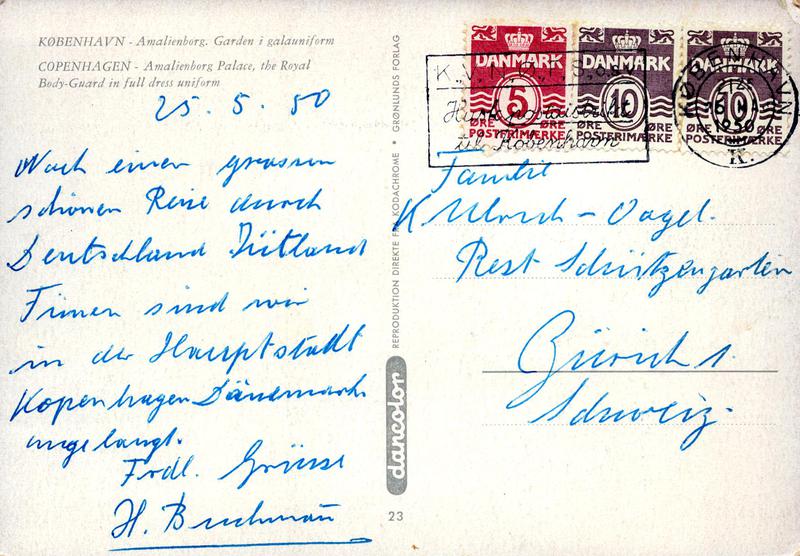 KØBENHAVN - Amalienborg. Garden i galauniform
COPENHAGEN - Amalienborg Palace, the Royal
Body-Guard in full dress uniform
25. 5. 50
Nach einer grossen
schönen Reise durch
Deutschland Jütland
Fünen sind wir
in der Hauptstadt
Kopenhagen Dänemarks
angelangt.
Frdl. Grüsse
H. Buchmann
REPRODUKTION DIREKTE FRA KODACHROME • GRØNLUNDS FORLAG
dancolor
23
DANMARK
5
ØRE ØRE
POSTFRIMÆRKE
DANMARK
10
ØRE ØRE
POSTFRIMÆRKE
DANMARK
10
ØRE ØRE
POSTFRIMÆRKE
Husk postdistrikt
til København
KØBENHAVN
1950
K.
Familie
K Ulrich - Vogel.
Rest Schützengarten
Zürich 1.
Schweiz.